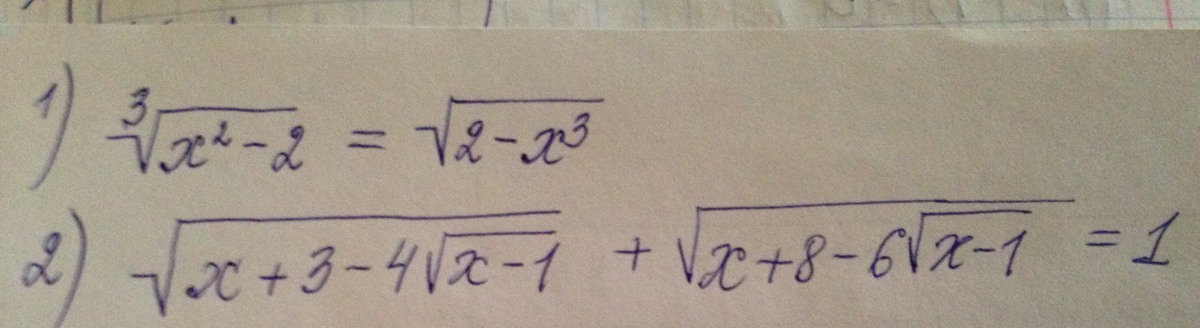 1) ∛(x² - 2) = √(2 - x³)
2) √(x + 3 - 4√(x - 1)) + √(x + 8 - 6√(x - 1)) = 1